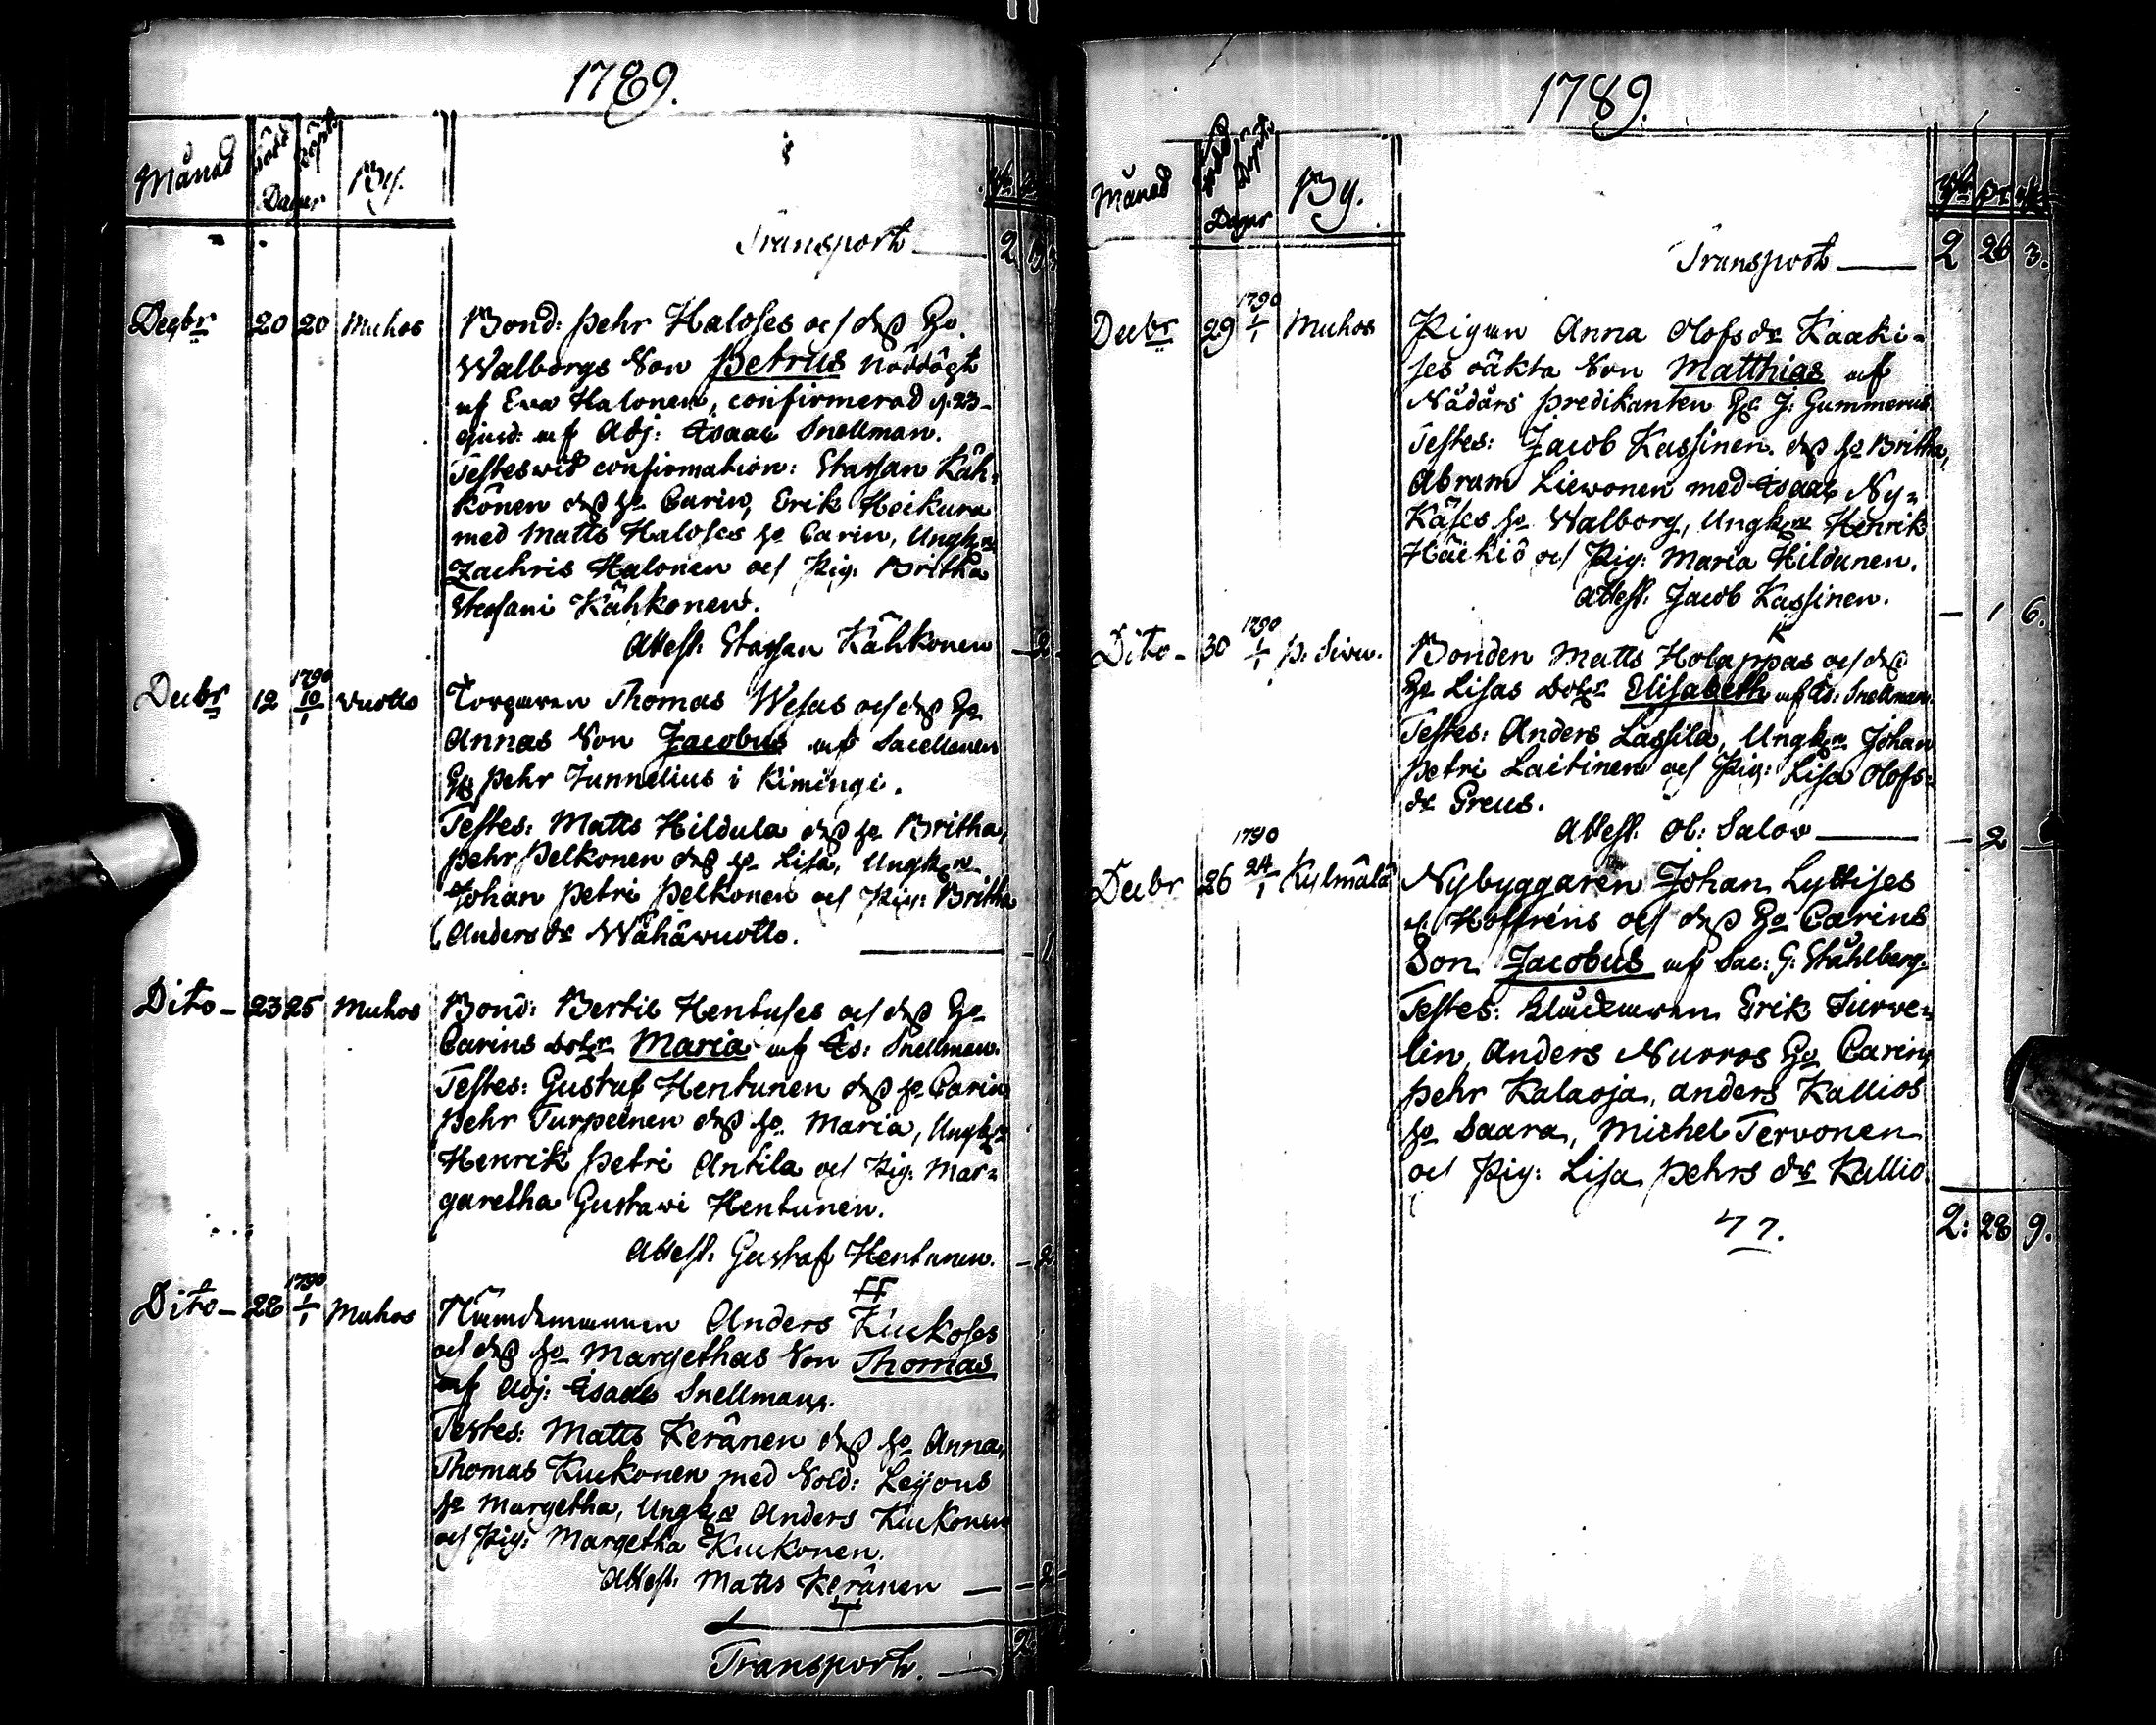 1789.
Månad Född Döpt Dagar By.
Transport 2
Decbr 20 20 Muhos Bond: Pehr Haloses och dess Ho
Walborgs Son Petrus nöddögt
af Eva Halonen, confirmerad d. 23
ejusd: af Adj: Isaac Snellman.
Testes wid confirmation: Staffan Käh-
könen dess ho Carin, Erik Heikura
med Matts Haloses ho Carin, Ungk:n
Zachris Halonen och Pig: Britha
Staffani Kähkonen.
Attest: Staffan Kähkonen - 2
Decbr 12 1790 10/1 Vuotto Torparen Thomas Wesas och dess Ho
Annas Son Jacobus af Sacellanen
Hr Pehr Junnelius i Kimingi.
Testes: Matts Hildula dess ho Britha,
Pehr Pelkonen dess ho Lisa, Ungk:n
Johan Petri Pelkonen och Pig: Britha
Anders dr Wähäwuotto. - 1
Dito - 23 25 Muhos Bond: Bertil Hentuses och dess Ho
Carins dotr Maria af Is: Snellman.
Testes: Gustaf Hentunen dess ho Carin
Pehr Turpeinen dess ho Maria, Ungk:n
Henrik Petri Antila och Pig: Mar-
garetha Gustawi Hentunen.
Attest: Gustaf Hentunen. - 2
Dito - 28 1790 1/1 Muhos Nämdemannen Anders Kuckoses
och dess ho Margethas Son Thomas
af Adj: Isaac Snellman.
Testes: Matts Keränen dess ho Anna,
Thomas Kuckonen med Sold: Leijons
ho Margetha, Ungk:n Anders Kuckonen
och Pig: Margetha Kuckonen.
Attest: Matts Keränen - 2
Transport. 2
1789.
Månad Född Döpt Dagar By.
Transport 2 26 3.
Decbr 29 1790 1/1 Muhos Pigan Anna Olofs dr Kaaki-
ses oäkta Son Matthias af
Nådårs Predikanten Hr J: Gummerus
Testes: Jacob Kassinen. dess ho Britha,
Abram Liewonen med Isaac Ny-
Käses ho Walborg, Ungk:n Henrik
Häikiö och Pig: Maria Hildunen.
Attest: Jacob Kassinen. - 1 6.
Dito - 30 1790 1/1 P. Siwu. Bonden Matts Holappas och dess
Ho Lisas dotr Elisabeth af Is: Snellman
Testes: Anders Lassila, Ungk:n Johan
Petri Laitinen och Pig: Lisa Olofs-
dr Greus.
Attest: Ol: Salov - 2 -
Decbr 26 1790 24/1 Kylmälä Nybyggaren Johan Lyttises
l. Hoffréns och dess Ho Carins
Son Jacobus af Sac: G: Ståhlberg.
Testes: Erik Turve-
lin, Anders Nurros Ho Carin,
Pehr Kalaoja, Anders Kallios
ho Saara, Michel Tervonen
och Pig: Lisa Pehrs dr Kallio.
77. 2: 28 9.